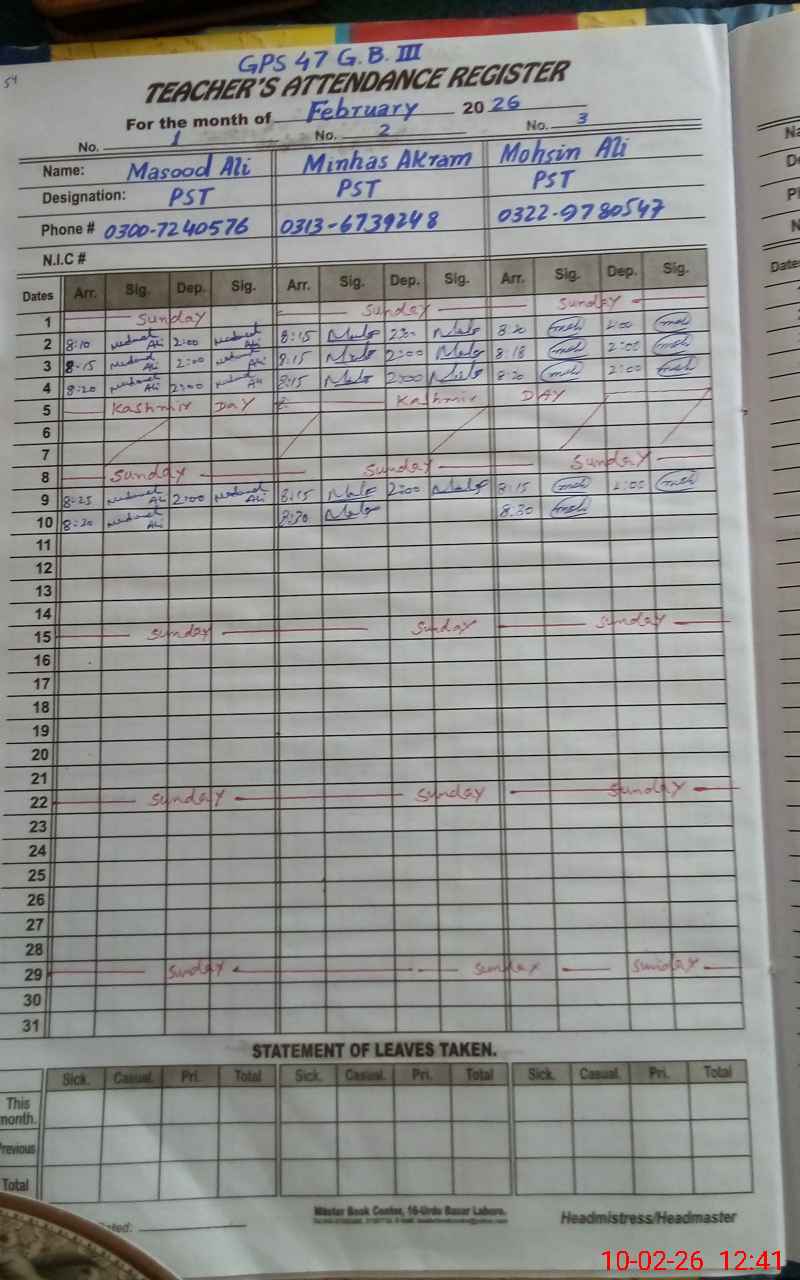 54
GPS 47 G.B. III
TEACHER'S ATTENDANCE REGISTER
For the month of February 20 26
No. 1 No. 2 No. 3
Name: Masood Ali Minhas Akram Mohsin Ali
Designation: PST PST PST
Phone # 0300-7240576 0313-6739248 0322-9780547
N.I.C #
Dates Arr. Sig. Dep. Sig. Arr. Sig. Dep. Sig. Arr. Sig. Dep. Sig.
1 Sunday Sunday Sunday
2 8:10 Ali 2:00 Ali 8:15 8:20 2:00
3 8-15 Ali 2:00 Ali 8:15 2:00 8:18 2:00
4 8:20 Ali 2:00 Ali 8:15 2:00 8:20 2:00
5 Kashmir DAY Kashmir DAY
6
7
8 Sunday Sunday Sunday
9 8:25 Ali 2:00 Ali 8:15 2:00 8:15 2:00
10 8:20 Ali 8:30 8:30
11
12
13
14
15 Sunday Sunday Sunday
16
17
18
19
20
21
22 Sunday Sunday Sunday
23
24
25
26
27
28
29 Sunday Sunday Sunday
30
31
STATEMENT OF LEAVES TAKEN.
Sick. Casual. Pri. Total Sick. Casual. Pri. Total Sick. Casual. Pri. Total
This
month.
Previous
Total
Master Book Center, 16-Urdu Bazar Lahore.
Headmistress/Headmaster
10-02-26 12:41